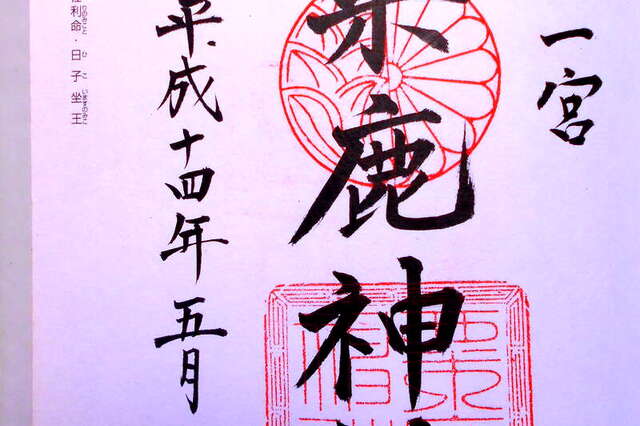 一宮
鹿神
平成十四年五月
利命・日子坐王